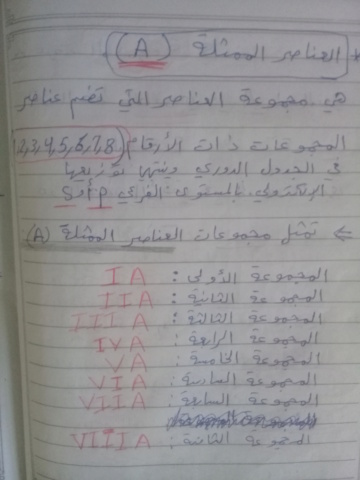 * العناصر الممثلة (A)
هي مجموعة العناصر التي تضم عناصر
المجموعات ذات الأرقام (1,2,3,4,5,6,7,8)
في الجدول الدوري وينتهي توزيعها
الإلكتروني بالمستوى الفرعي S أو P
← تمثل مجموعات العناصر الممثلة (A):
المجموعة الأولى: IA
المجموعة الثانية: IIA
المجموعة الثالثة: IIIA
المجموعة الرابعة: IVA
المجموعة الخامسة: VA
المجموعة السادسة: VIA
المجموعة السابعة: VIIA
المجموعة الثامنة: VIIIA